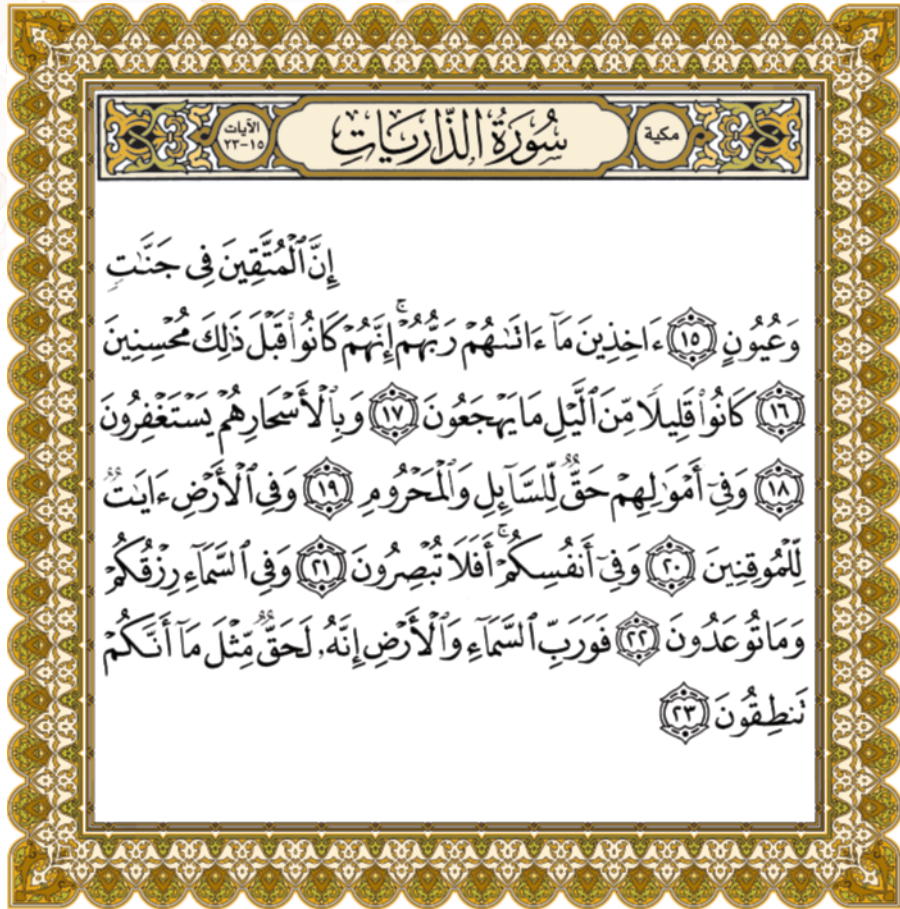 مكية
سُورَةُ الذَّارِيَاتِ
الآيات
١٥-٢٣
إِنَّ ٱلْمُتَّقِينَ فِى جَنَّٰتٍ
وَعُيُونٍ ١٥ ءَاخِذِينَ مَآ ءَاتَىٰهُمْ رَبُّهُمْ ۚ إِنَّهُمْ كَانُوا۟ قَبْلَ ذَٰلِكَ مُحْسِنِينَ
١٦ كَانُوا۟ قَلِيلًا مِّنَ ٱلَّيْلِ مَا يَهْجَعُونَ ١٧ وَبِٱلْأَسْحَارِ هُمْ يَسْتَغْفِرُونَ
١٨ وَفِىٓ أَمْوَٰلِهِمْ حَقٌّ لِّلسَّآئِلِ وَٱلْمَحْرُومِ ١٩ وَفِى ٱلْأَرْضِ ءَايَٰتٌ
لِّلْمُوقِنِينَ ٢٠ وَفِىٓ أَنفُسِكُمْ ۚ أَفَلَا تُبْصِرُونَ ٢١ وَفِى ٱلسَّمَآءِ رِزْقُكُمْ
وَمَا تُوعَدُونَ ٢٢ فَوَرَبِّ ٱلسَّمَآءِ وَٱلْأَرْضِ إِنَّهُۥ لَحَقٌّ مِّثْلَ مَآ أَنَّكُمْ
تَنطِقُونَ ٢٣